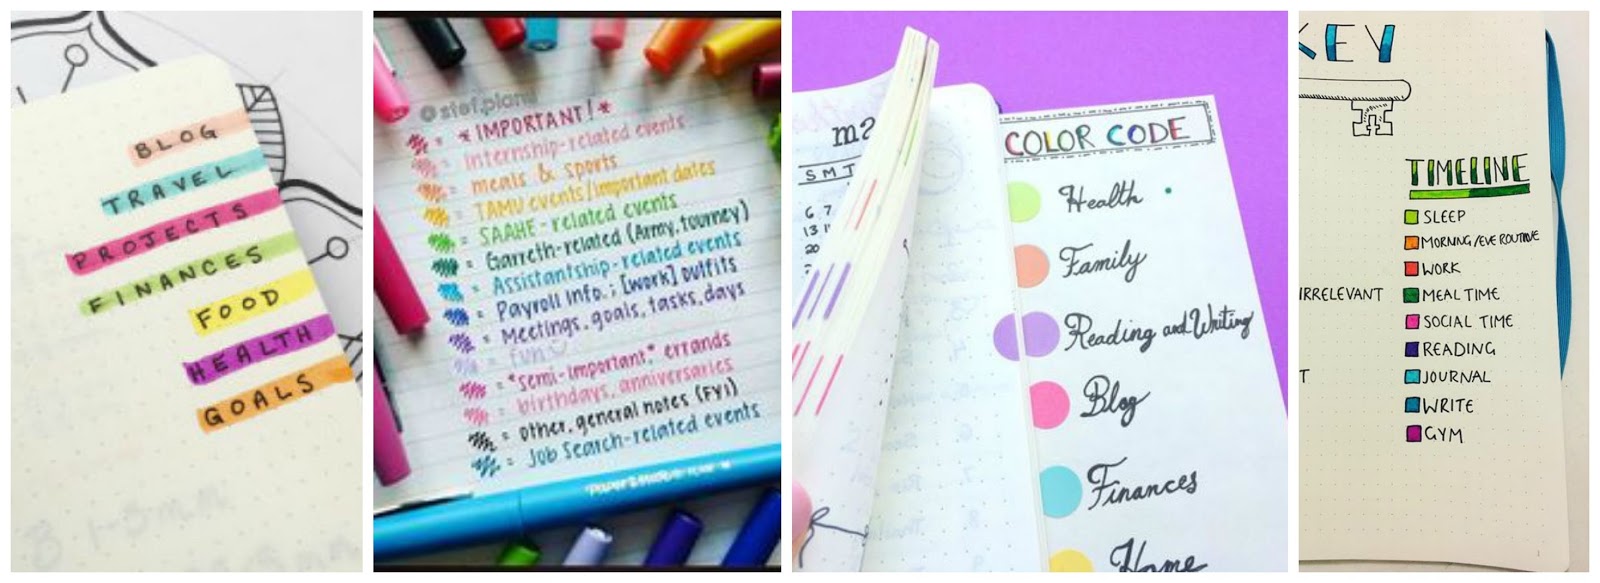 BLOG
TRAVEL
PROJECTS
FINANCES
FOOD
HEALTH
GOALS
= *IMPORTANT!*
= internship-related events
= meals & sports
= TAMU events/important dates
= SAAHE-related events
= Garreth-related (Army, tourney)
= Assistantship-related events
= Payroll Info.; [work] outfits
= Meetings, goals, tasks, days
= fun
= *semi-important* errands
= birthdays, anniversaries
= other, general notes (FYI)
= Job Search-related events
S M T
6 7
13
20
COLOR CODE
Health
Family
Reading and Writing
Blog
Finances
Home
KEY
TIMELINE
SLEEP
MORNING/EVE ROUTINE
WORK
IRRELEVANT
MEAL TIME
SOCIAL TIME
READING
JOURNAL
WRITE
GYM